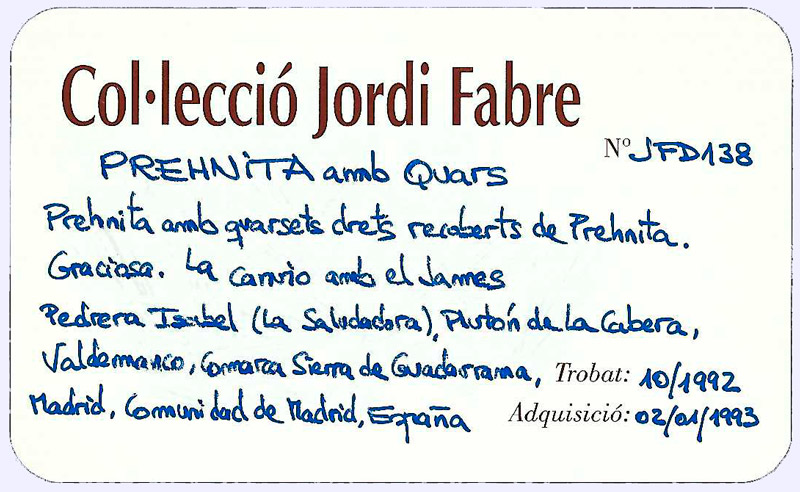 Col·lecció Jordi Fabre
Nº JFD138
PREHNITA amb Quars
Prehnita amb quarsets drets recoberts de Prehnita.
Graciosa. La canvio amb el James
Pedrera Isabel (La Saludadora), Plutón de La Cabera,
Valdemanco, Comarca Sierra de Guadarrama,
Trobat: 10/1992
Madrid, Comunidad de Madrid, España
Adquisició: 02/01/1993